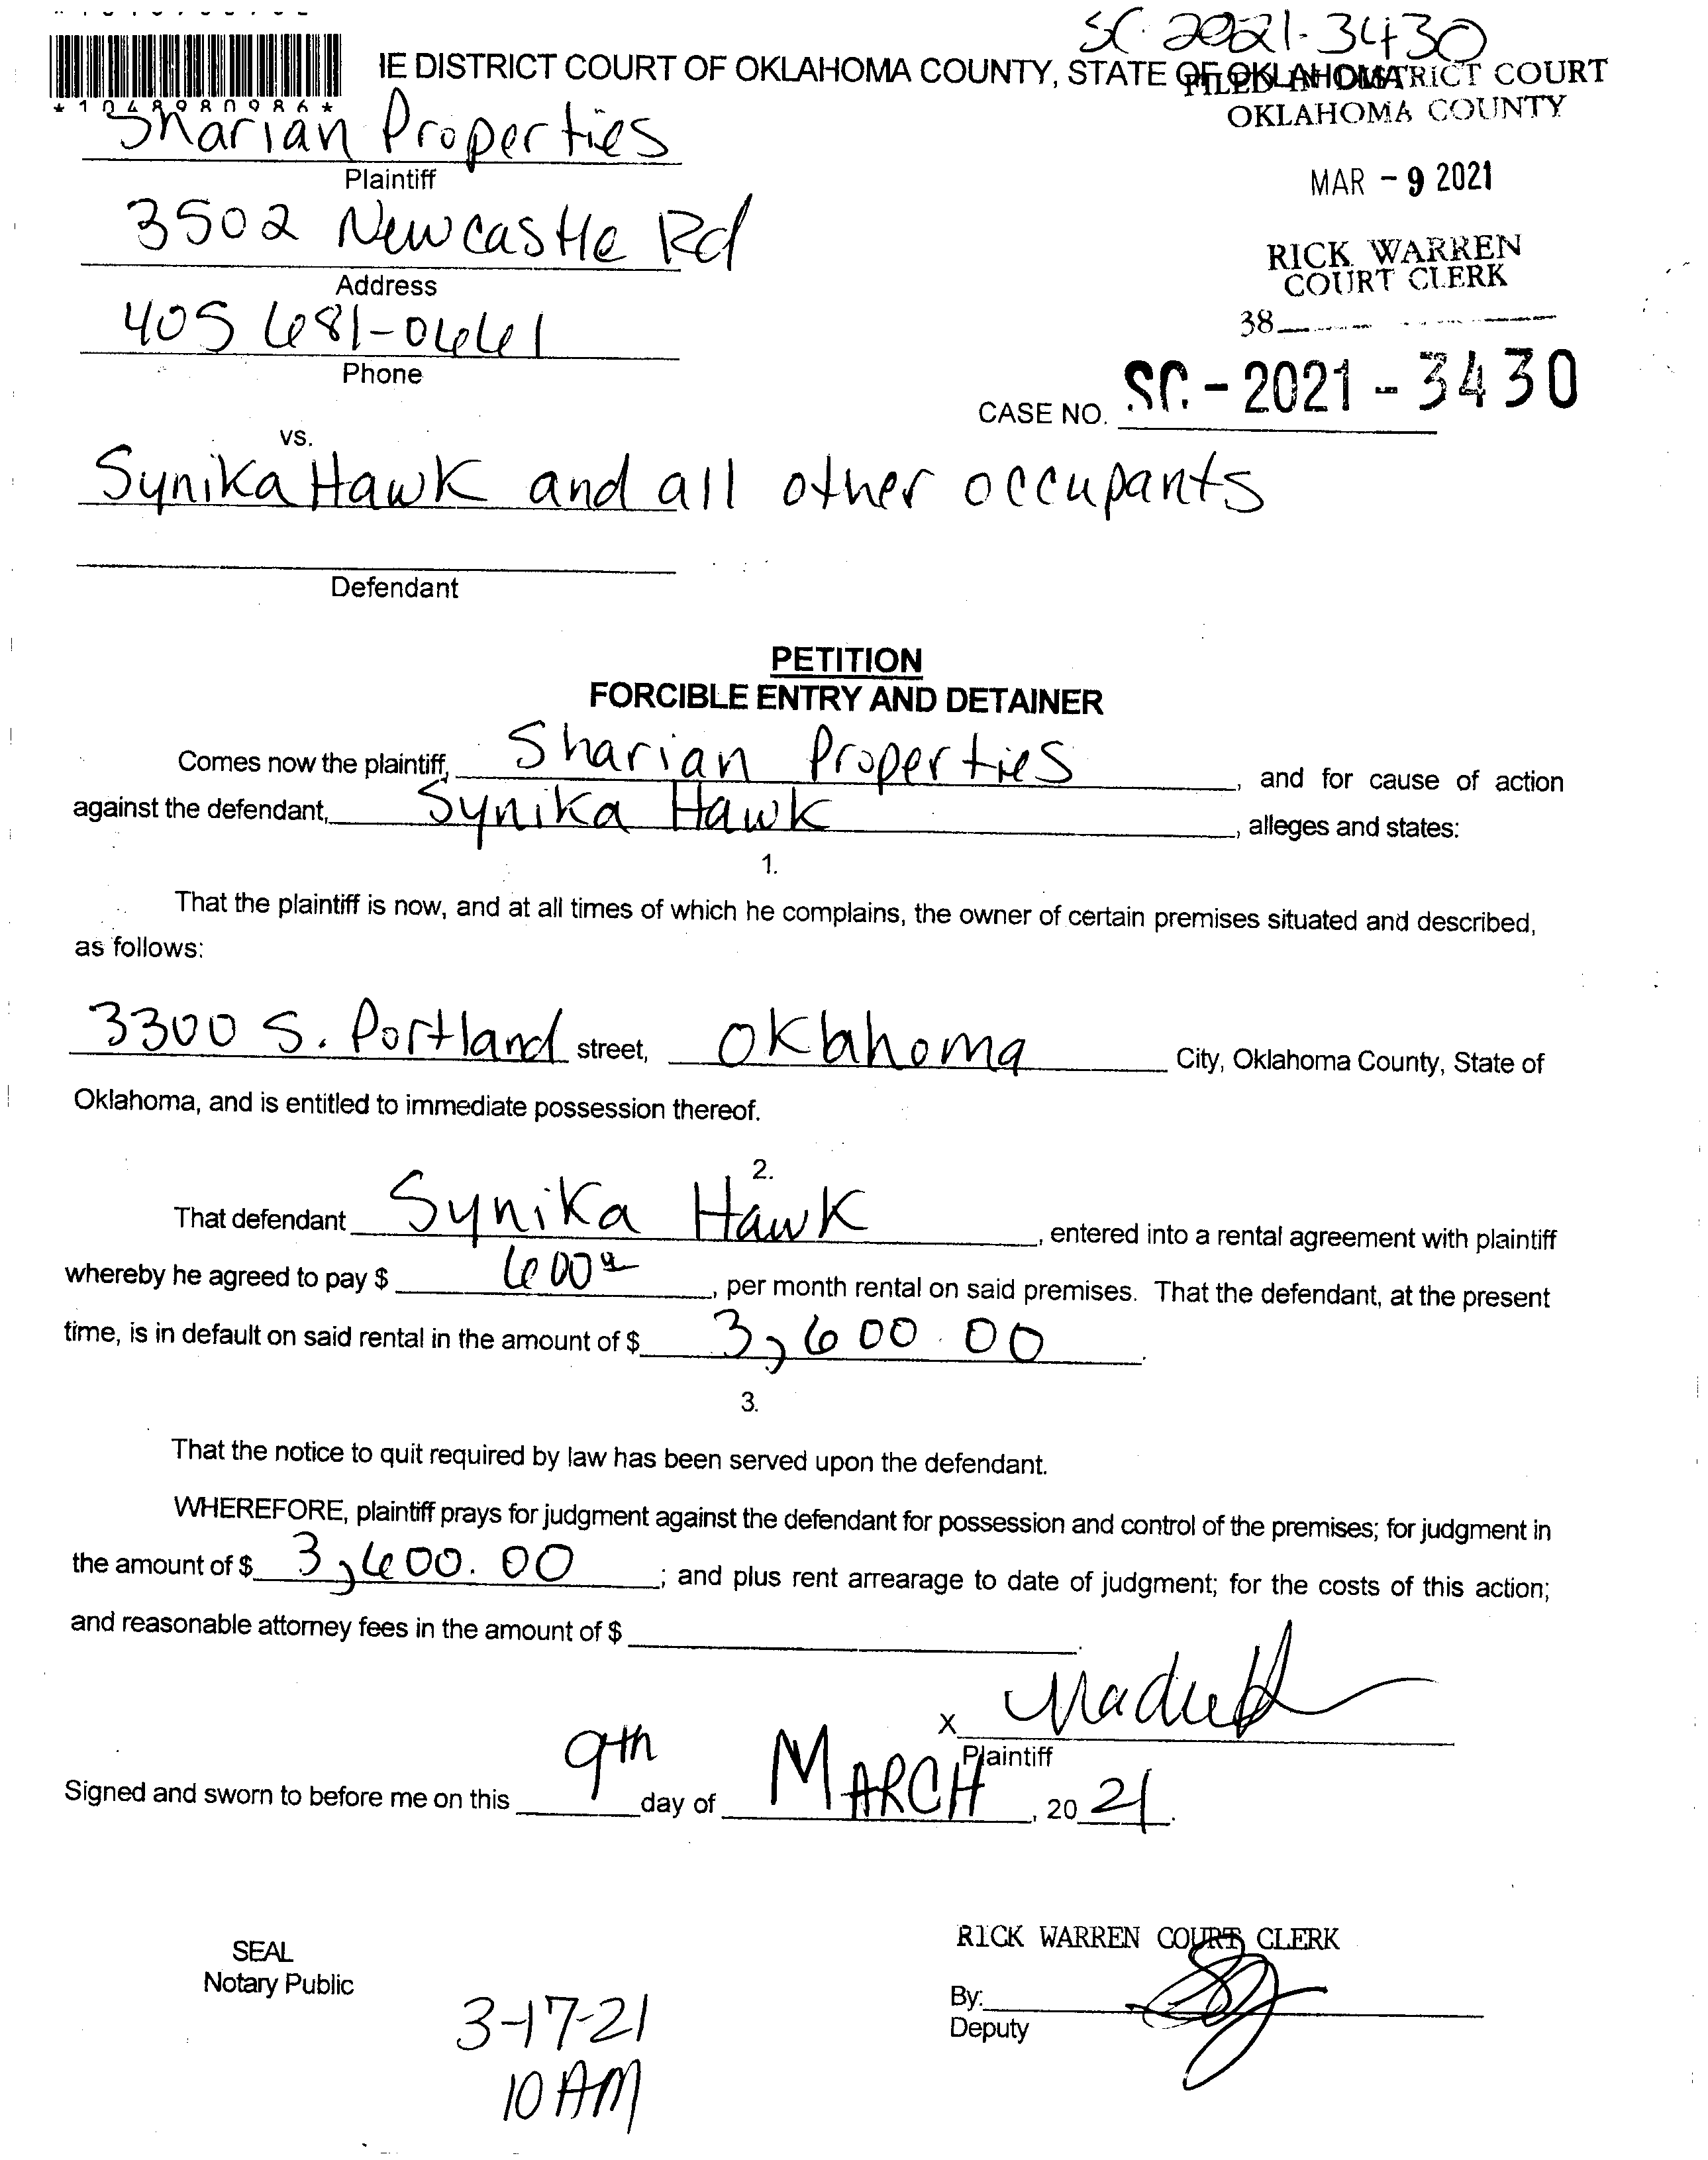 SC-2021-3430
IE DISTRICT COURT OF OKLAHOMA COUNTY, STATE OF OKLAHOMA
FILED IN DISTRICT COURT
OKLAHOMA COUNTY
*1048980986*
Sharian Properties
Plaintiff
MAR - 9 2021
3502 Newcastle Rd
Address
RICK WARREN
COURT CLERK
405 681-0661
Phone
38
CASE NO. SC - 2021 - 3430
vs.
Synika Hawk and all other occupants
Defendant
PETITION
FORCIBLE ENTRY AND DETAINER
Comes now the plaintiff, Sharian Properties, and for cause of action
against the defendant, Synika Hawk, alleges and states:
1.
That the plaintiff is now, and at all times of which he complains, the owner of certain premises situated and described,
as follows:
3300 S. Portland street, Oklahoma City, Oklahoma County, State of
Oklahoma, and is entitled to immediate possession thereof.
2.
That defendant Synika Hawk, entered into a rental agreement with plaintiff
whereby he agreed to pay $ 600, per month rental on said premises. That the defendant, at the present
time, is in default on said rental in the amount of $ 3,600.00.
3.
That the notice to quit required by law has been served upon the defendant.
WHEREFORE, plaintiff prays for judgment against the defendant for possession and control of the premises; for judgment in
the amount of $ 3,600.00; and plus rent arrearage to date of judgment; for the costs of this action;
and reasonable attorney fees in the amount of $ .
X
Plaintiff
Signed and sworn to before me on this 9th day of MARCH, 2021.
RICK WARREN COURT CLERK
SEAL
Notary Public
By:
Deputy
3-17-21
10 AM